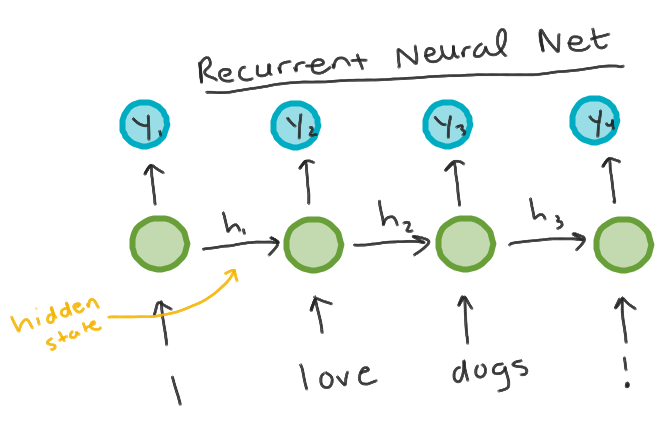 Recurrent Neural Net
y₁ y₂ y₃ y₄
h₁ h₂ h₃
hidden
state
I love dogs !